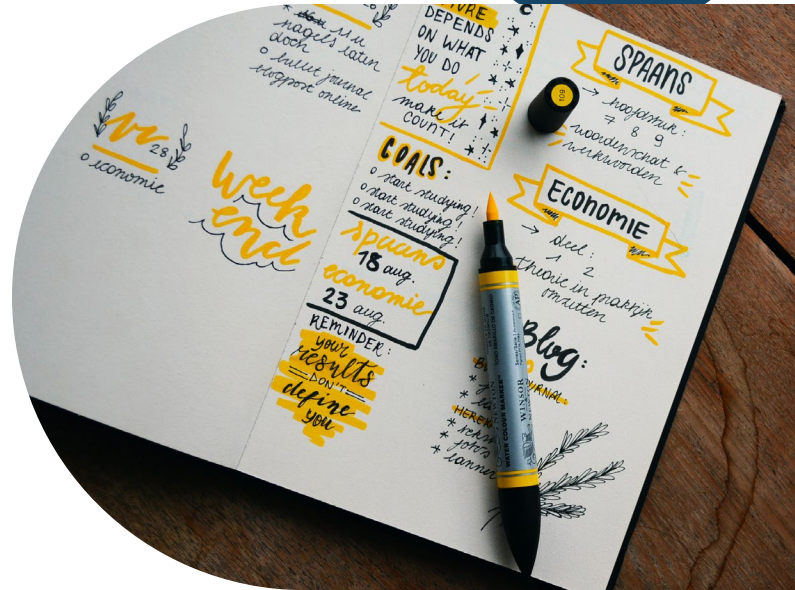 nagels laten
doen
o bullet journal
blogpost online
vr
28
o economie
week
end
DEPENDS
ON WHAT
YOU DO
today
make it
COUNT!
GOALS:
o start studying!
o start studying!
o start studying!
spaans
18 aug.
economie
23 aug.
REMINDER:
your
results
DON'T
define
you
SPAANS
→ hoofdstuk:
7 8 9
woordenschat &
werkwoorden
ECONOMIE
→ deel:
1 2
theorie in praktijk
omzetten
Blog:
109
WINSOR
WATER COLOUR MARKER